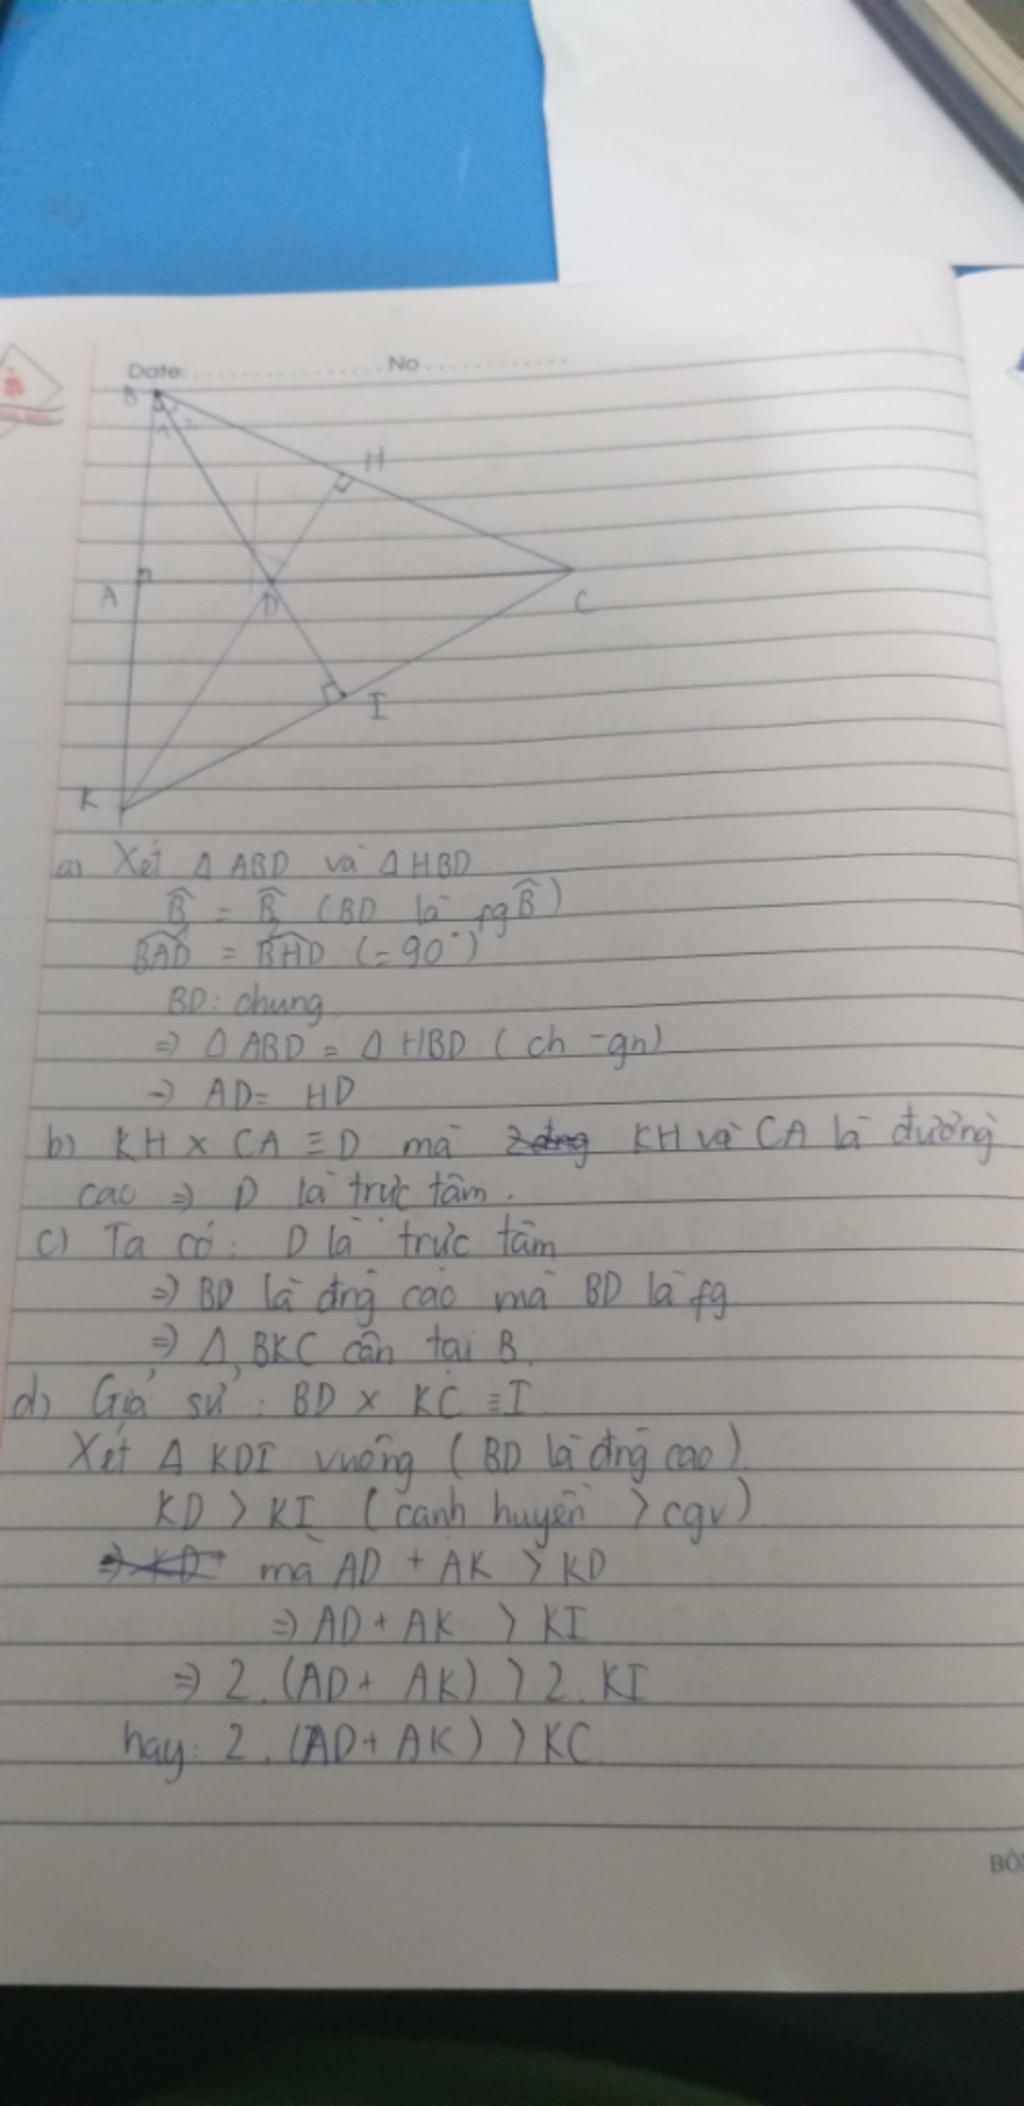 Date: ................. No ............
B
1 2
H
A
D
C
I
K
a) Xét Δ ABD và Δ HBD
B̂₁ = B̂₂ (BD là pg B̂)
BAD = BHD (= 90°)
BD: chung
=> Δ ABD = Δ HBD (ch - gn)
=> AD = HD
b) KH x CA ≡ D mà KH và CA là đường
cao => D là trực tâm.
c) Ta có: D là trực tâm
=> BD là đng cao mà BD là fg
=> Δ BKC cân tại B.
d) Giả sử: BD x KC ≡ I
Xét Δ KDI vuông (BD là đng cao)
KD > KI (cạnh huyền > cgv)
mà AD + AK > KD
=> AD + AK > KI
=> 2. (AD + AK) > 2. KI
hay: 2. (AD + AK) > KC.